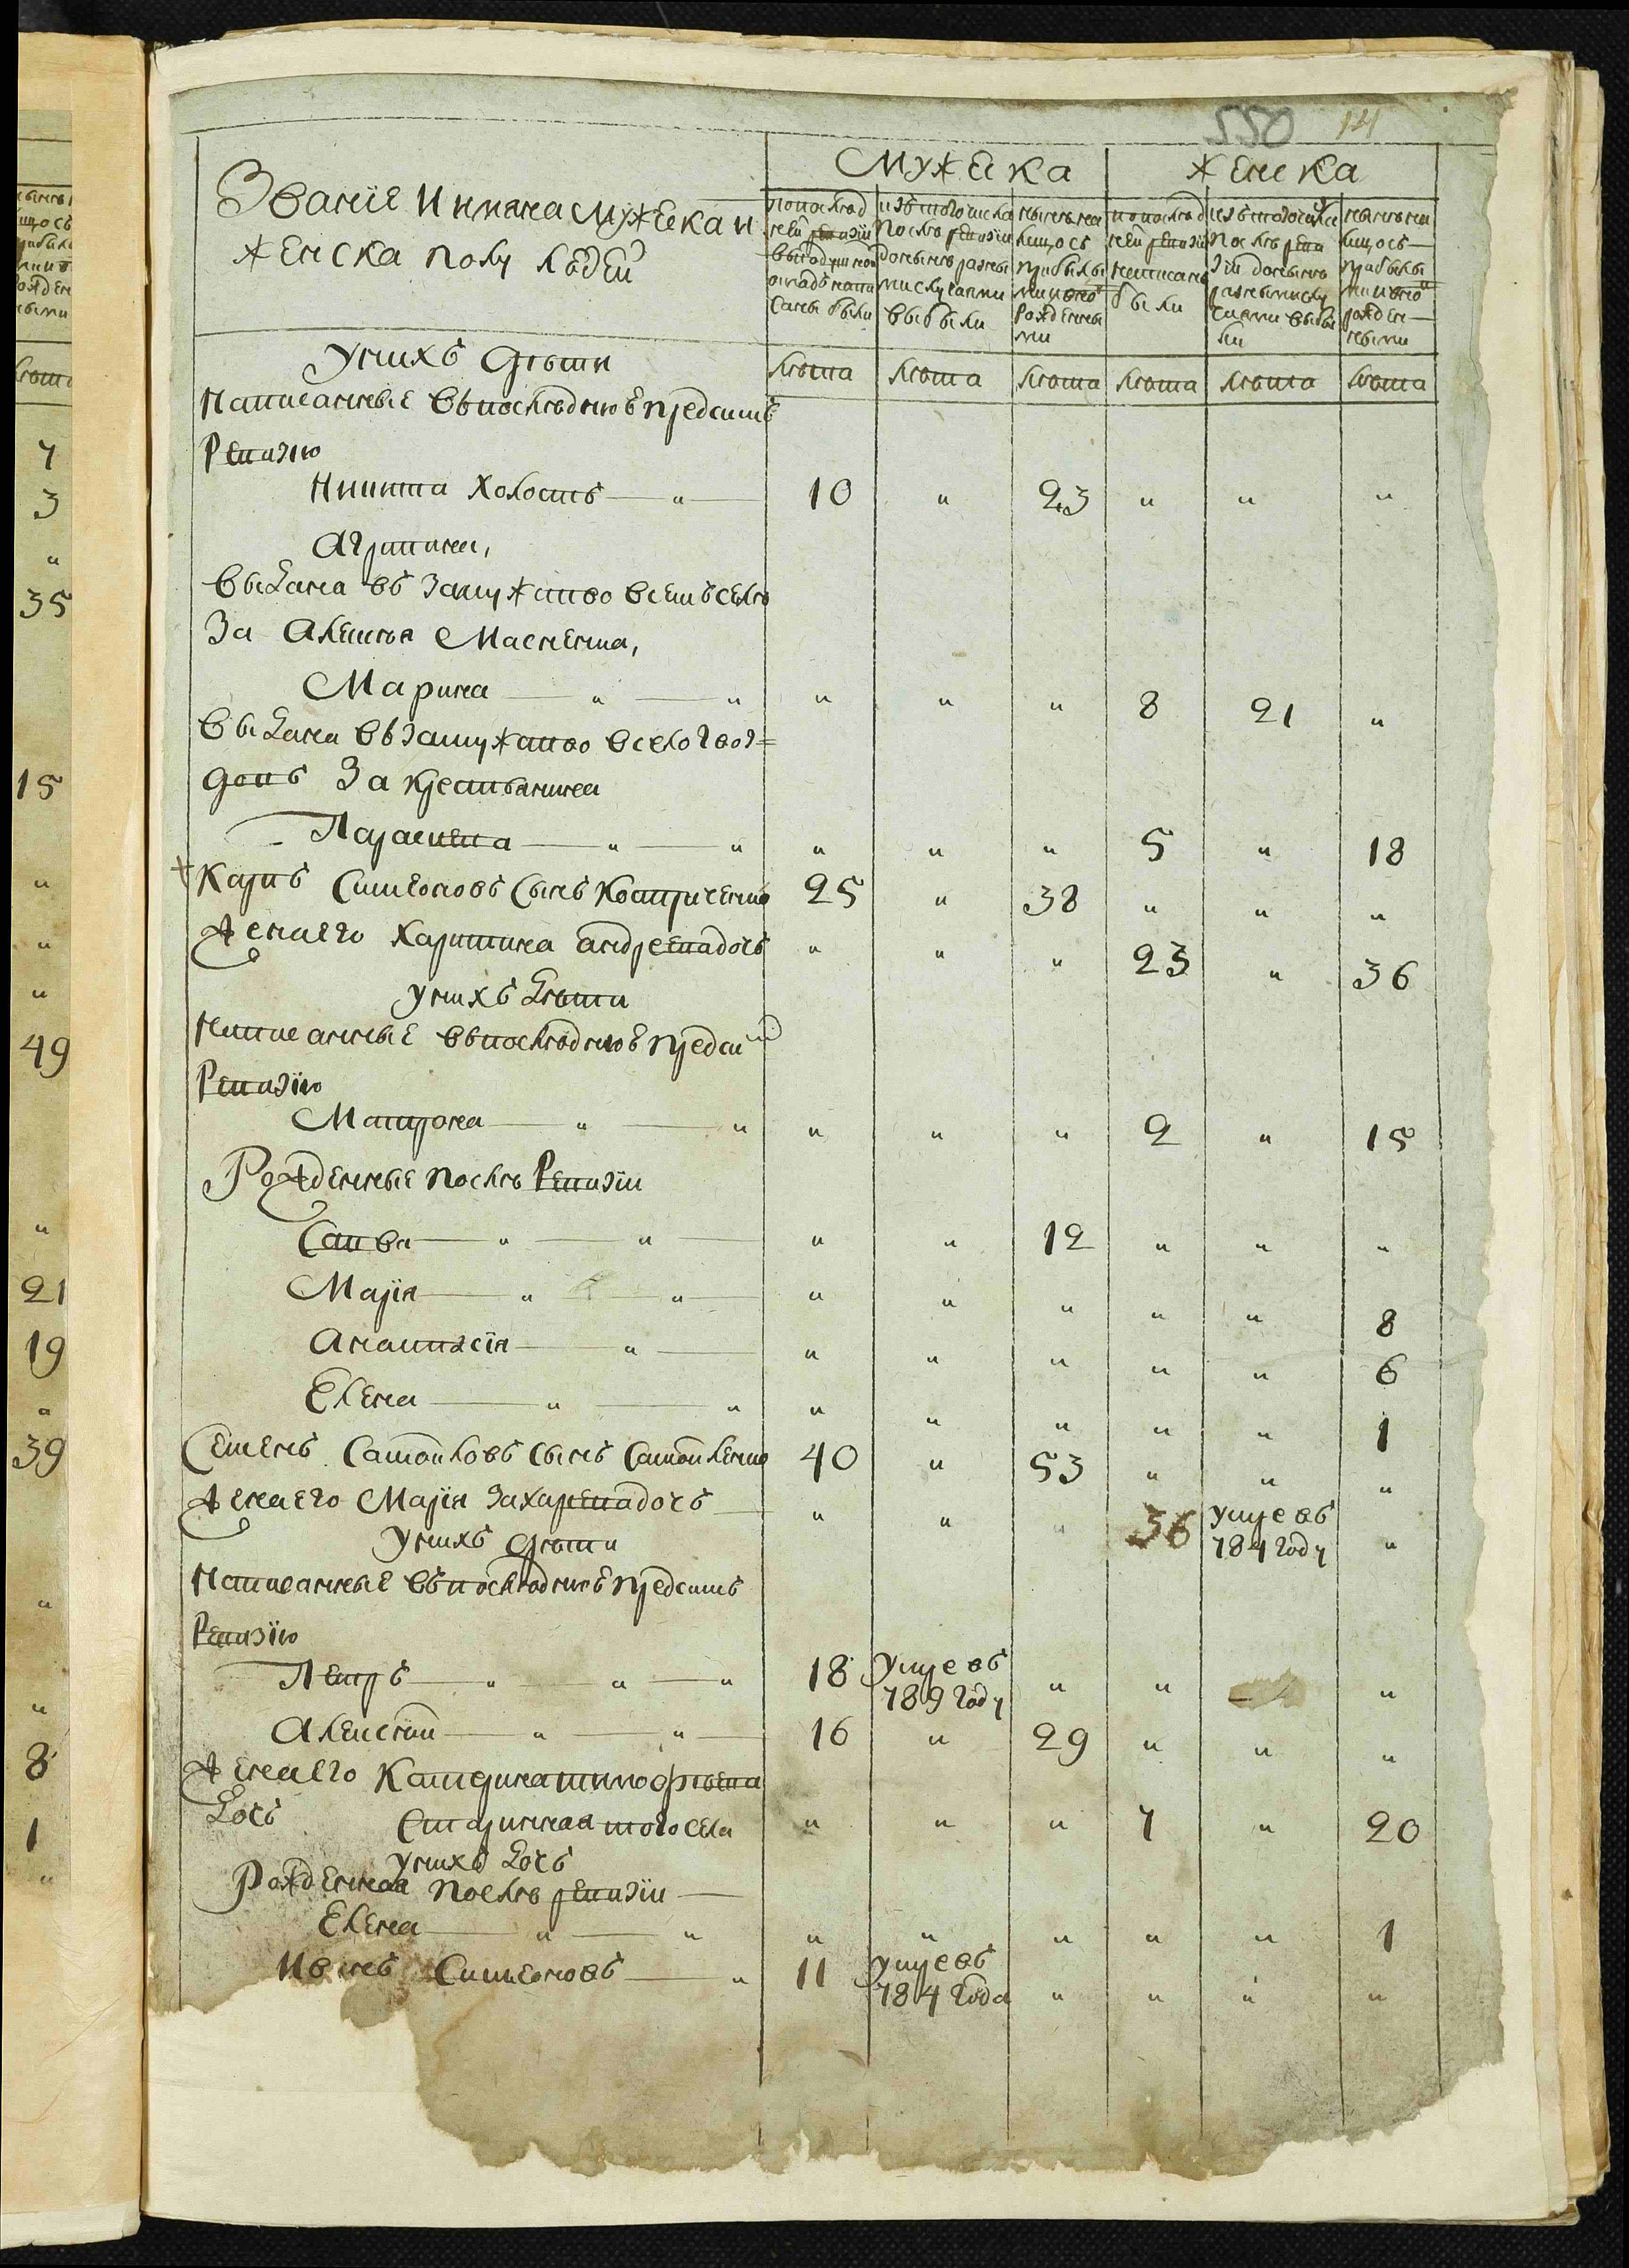 550 141
Званїе И имяна мужеска и
женска полу людей
Мужеска
Женска
попослѣд
ней ревизїи
въподушной
окладъ напи
саны были
изъ того числа
послѣ ревизїи
до нынѣ разны
ми случаями
выбыли
нынѣ на
лицо съ
прибылы
ми и вно
рожденны
ми
попослѣд
ней ревизїи
написано
были
изъ того числа
послѣ реви
зїи до нынѣ
разными слу
чаями выбы
ли
нынѣ на
лицо съ
прибылы
ми и вно
рожден
ными
лѣта лѣта лѣта лѣта лѣта лѣта
У нихъ дѣти
Написанные въ последнюю предъ симъ
Ревизию
Никита холостъ — " — 10 " 23 " " "
Агрипина,
выдана въ замужство в семъ селѣ
За Алексѣя Масненка,
Марина — " — " " " " 8 21 "
выдана въ замужство в село Гвоз=
довъ За крестьянина
Параскева — " — " " " " 5 " 18
+ Карпъ Симеоновъ сынъ Костриченко 25 " 38 " " "
Жена его Харитина андреева дочь " " " 23 " 36
у нихъ дѣти
Написанные въ последнюю предъ сим
Ревизїю
Матрона — " — " " " " 2 " 15
Рожденные послѣ Ревизїи
Савва — " — " — " " 12 " " "
Марїя — " — " — " " " " " 8
Анастасїя — " — " " " " " 6
Елена — " — " " " " " " 1
Семенъ Самойловъ сынъ Самойленко 40 " 53 " " "
Жена его Марїя Захарева дочь — " " " 36 умре въ 784 году "
У нихъ дѣти
Написанные въ последнюю предъ симъ
Ревизїю
Петръ — " — " — " 18 умре въ 789 году " " "
Алексѣй — " — " — 16 " 29 " " "
Жена его Катерина тимофѣева
дочь Старинная того села " " " 7 " 20
у нихъ дочь
Рожденная послѣ ревизїи —
Елена — " — " " " " " " 1
Иванъ Симеоновъ — " 11 умре въ 784 года " " " "
7
3
"
35
15
"
"
"
49
"
21
19
"
39
"
"
8
1
"